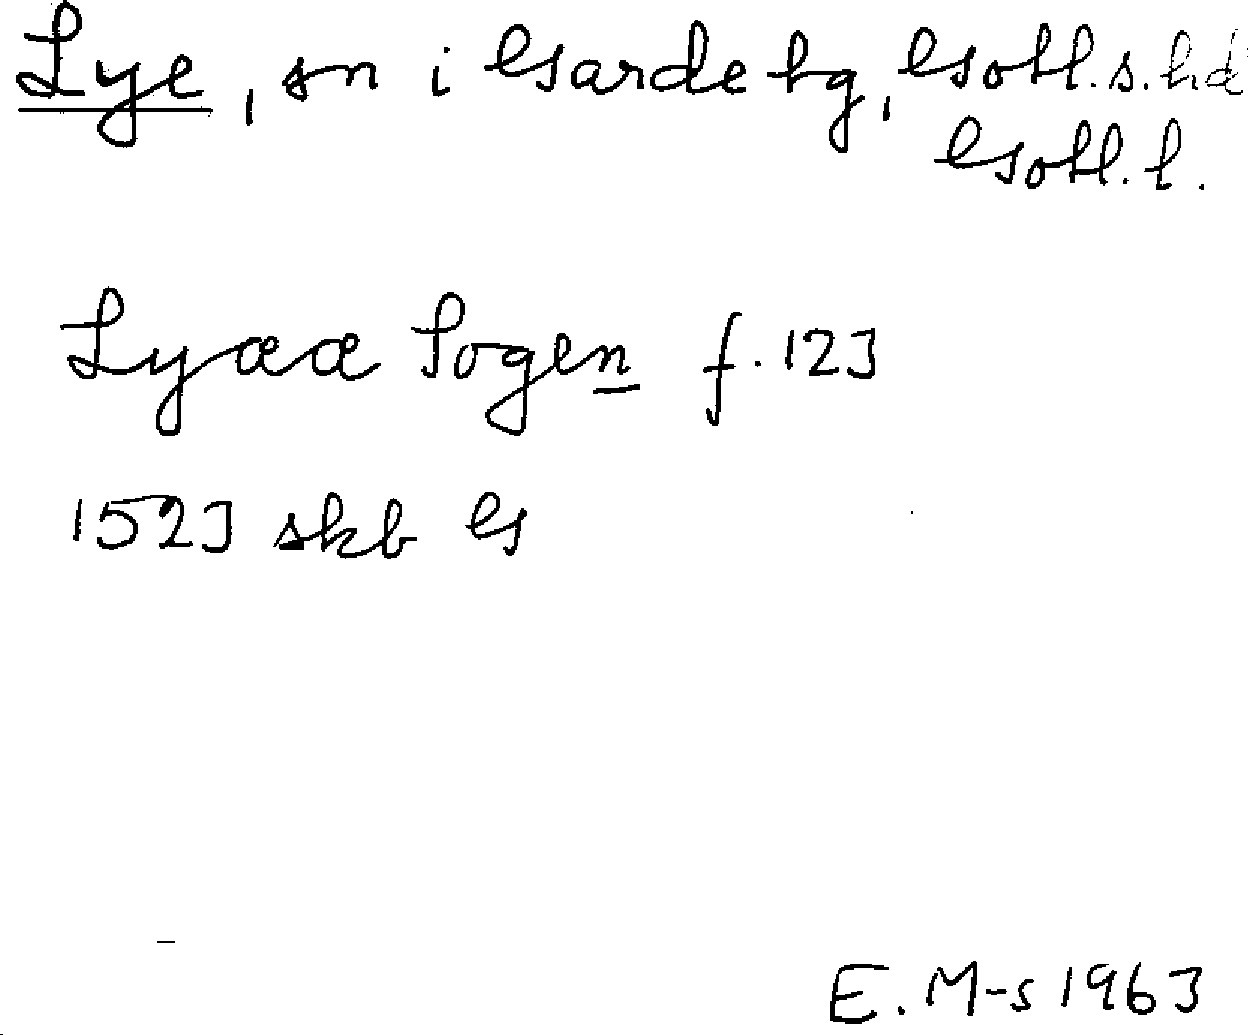 Lye, sn i Garde tg, Gotl.s.hd
Gotl. l.
Lyææ Sogen f. 123
1523 skb G
E. M-s 1963